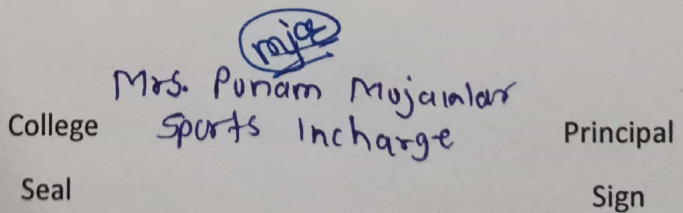 Mrs. Punam
College Sports Incharge Principal
Seal
Sign